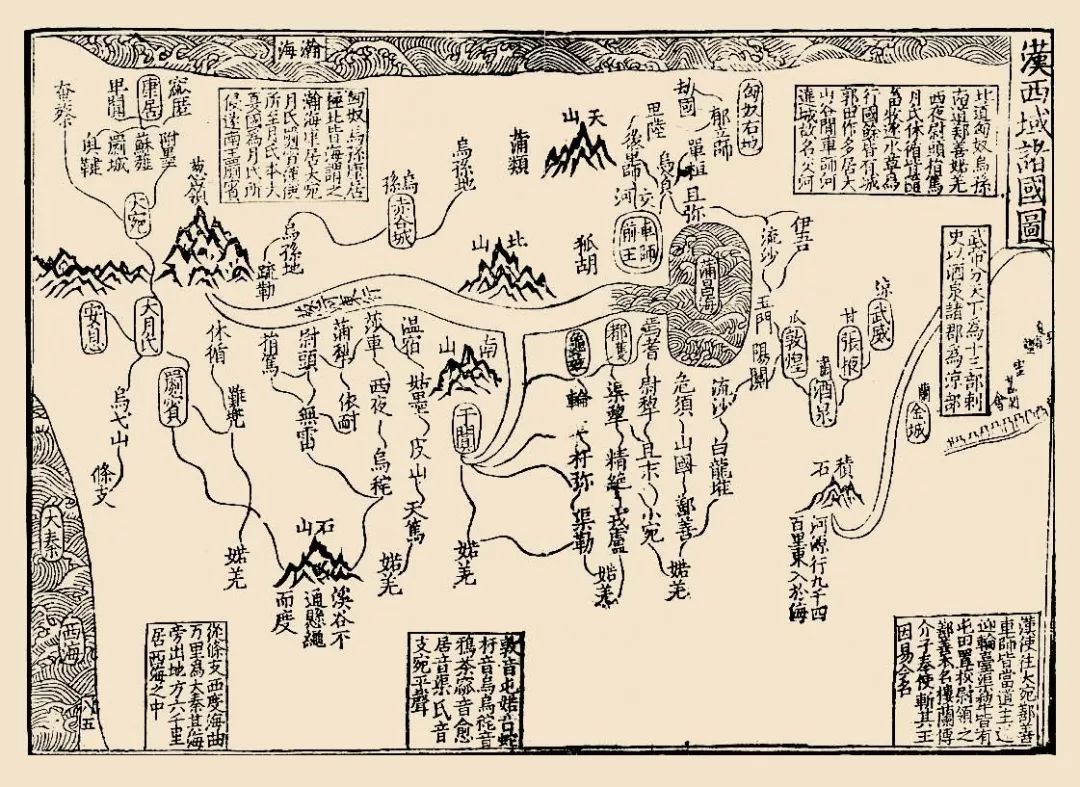 漢西域諸國圖
瀚海
北道匈奴烏孫
南道鄯善婼羌
西夜尉頭捐篤
月氏休循其國
畜牧逐水草爲
行國餘皆有城
郭田作多居大
山谷間車師河
匈奴右地
劫國
郁立師
單桓
卑陸
後車師
且弥
河
車師
前王
狐胡
天山
蒲類
烏孫地
烏孫
赤谷城
匈奴烏孫康居
極北皆海謂之
瀚海康居大宛
所至月氏本大
夏國爲月氏所
侵遂南王罽賓
奄蔡
康居
罽城
蘇薤
附墨
奧鞬
大宛
葱嶺
烏孫地
疏勒
北山
蒲昌海
伊吾
流沙
玉門
陽關
敦煌
酒泉
甘
張掖
涼
武威
蘭
金城
武帝分天下爲十三部刺
史以酒泉諸郡爲涼部
安息
大月氏
罽賓
烏弋山
條支
休循
難兜
婼羌
捐篤
尉頭
無雷
蒲犁
依耐
莎車
西夜
烏秅
温宿
姑墨
皮山
天篤
婼羌
南山
于闐
婼羌
龜兹
輪
扜弥
渠勒
渠犂
精絶
戎盧
婼羌
焉耆
尉犂
且末
小宛
危須
山國
鄯善
婼羌
流沙
白龍堆
積石
河源行九千四
百里東入於海
石山
溪谷不
通縣繩
而度
大秦
西海
從條支西度海曲
万里爲大秦其海
旁出地方六千里
居西海之中
敦音屯婼音蛇
扜音烏烏秅音
鴉荼窳音愈
居音渠氏音
支宛平聲
漢使往大宛鄯善
車師皆當道主送
迎輪臺渠犂皆有
屯田置校尉領之
鄯善本名樓蘭傅
介子奉使斬其王
因易今名
八五